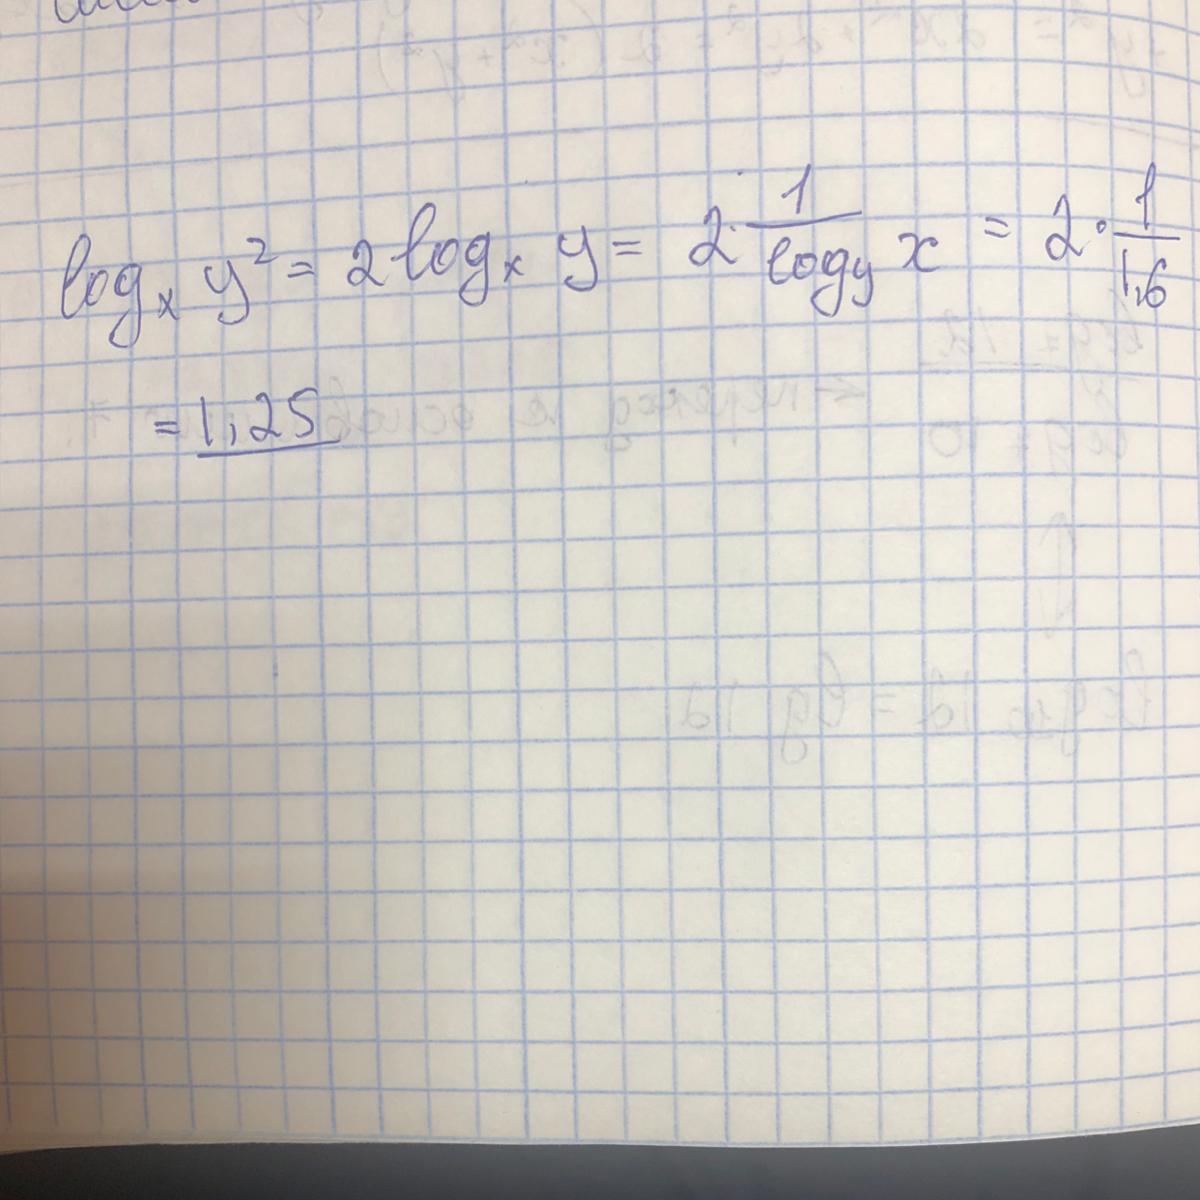 log_x y² = 2 log_x y = 2 · 1/(log_y x) = 2 · 1/1,6
= 1,25